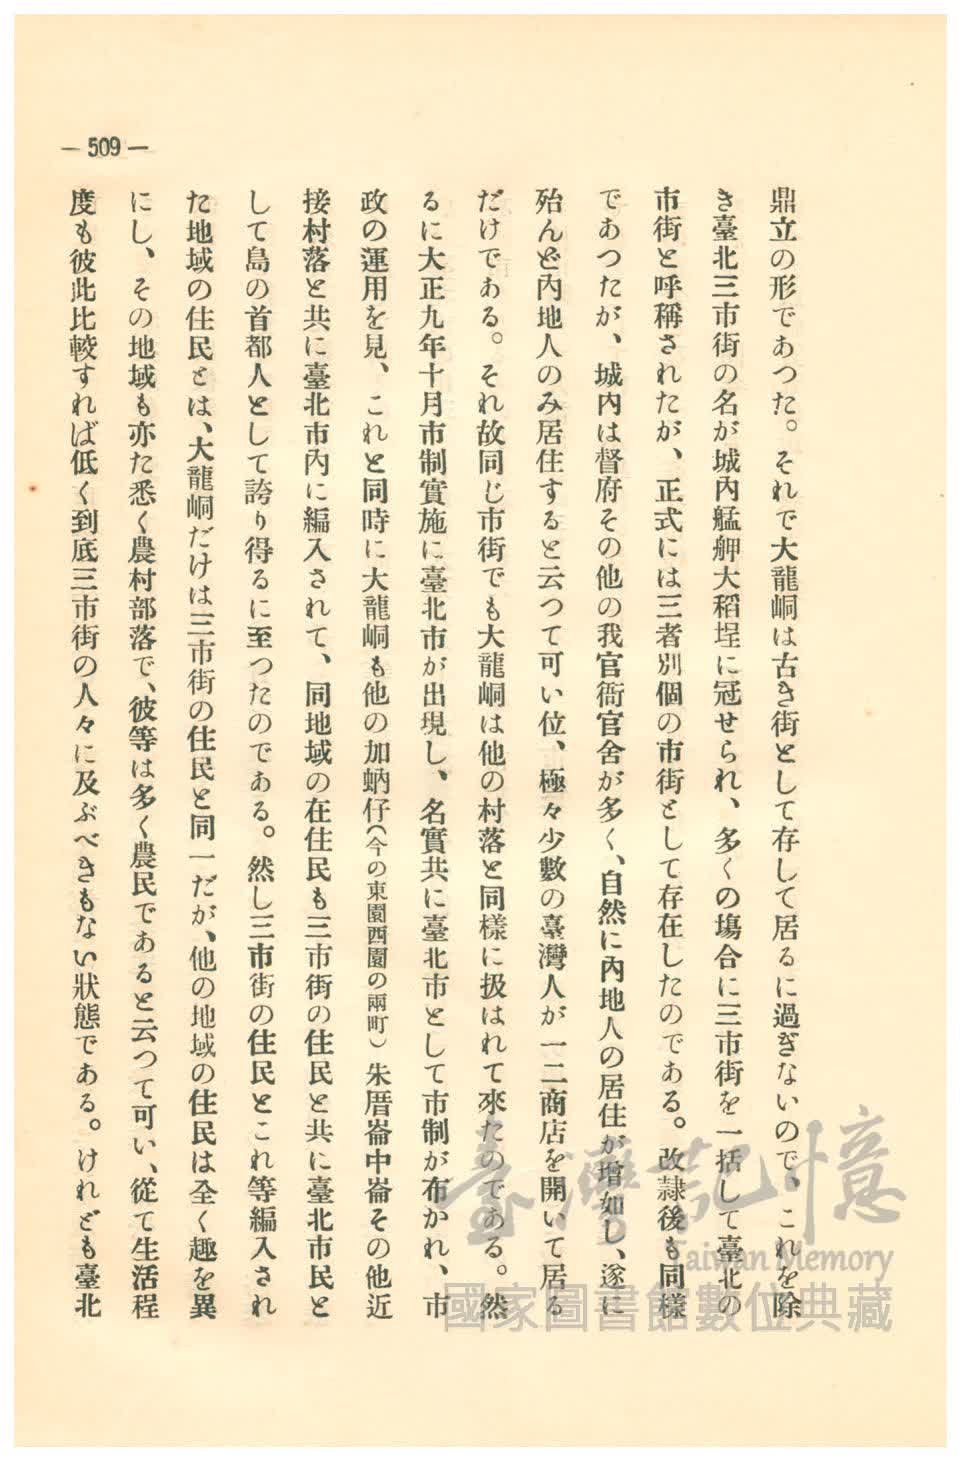 — 509 —
鼎立の形であつた。それで大龍峒は古き街として存して居るに過ぎないので、これを除
き臺北三市街の名が城內艋舺大稻埕に冠せられ、多くの場合に三市街を一括して臺北の
市街と呼稱されたが、正式には三者別個の市街として存在したのである。改隷後も同樣
であつたが、城內は督府その他の我官衙官舍が多く、自然に內地人の居住が增加し、遂に
殆んど內地人のみ居住すると云つて可い位、極々少數の臺灣人が一二商店を開いて居る
だけである。それ故同じ市街でも大龍峒は他の村落と同樣に扱はれて來たのである。然
るに大正九年十月市制實施に臺北市が出現し、名實共に臺北市として市制が布かれ、市
政の運用を見、これと同時に大龍峒も他の加蚋仔(今の東園西園の兩町)朱厝崙中崙その他近
接村落と共に臺北市內に編入されて、同地域の在住民も三市街の住民と共に臺北市民と
して島の首都人として誇り得るに至つたのである。然し三市街の住民とこれ等編入され
た地域の住民とは、大龍峒だけは三市街の住民と同一だが、他の地域の住民は全く趣を異
にし、その地域も亦た悉く農村部落で、彼等は多く農民であると云つて可い、從て生活程
度も彼此比較すれば低く到底三市街の人々に及ぶべきもない狀態である。けれども臺北
臺灣記憶
Taiwan Memory
國家圖書館數位典藏